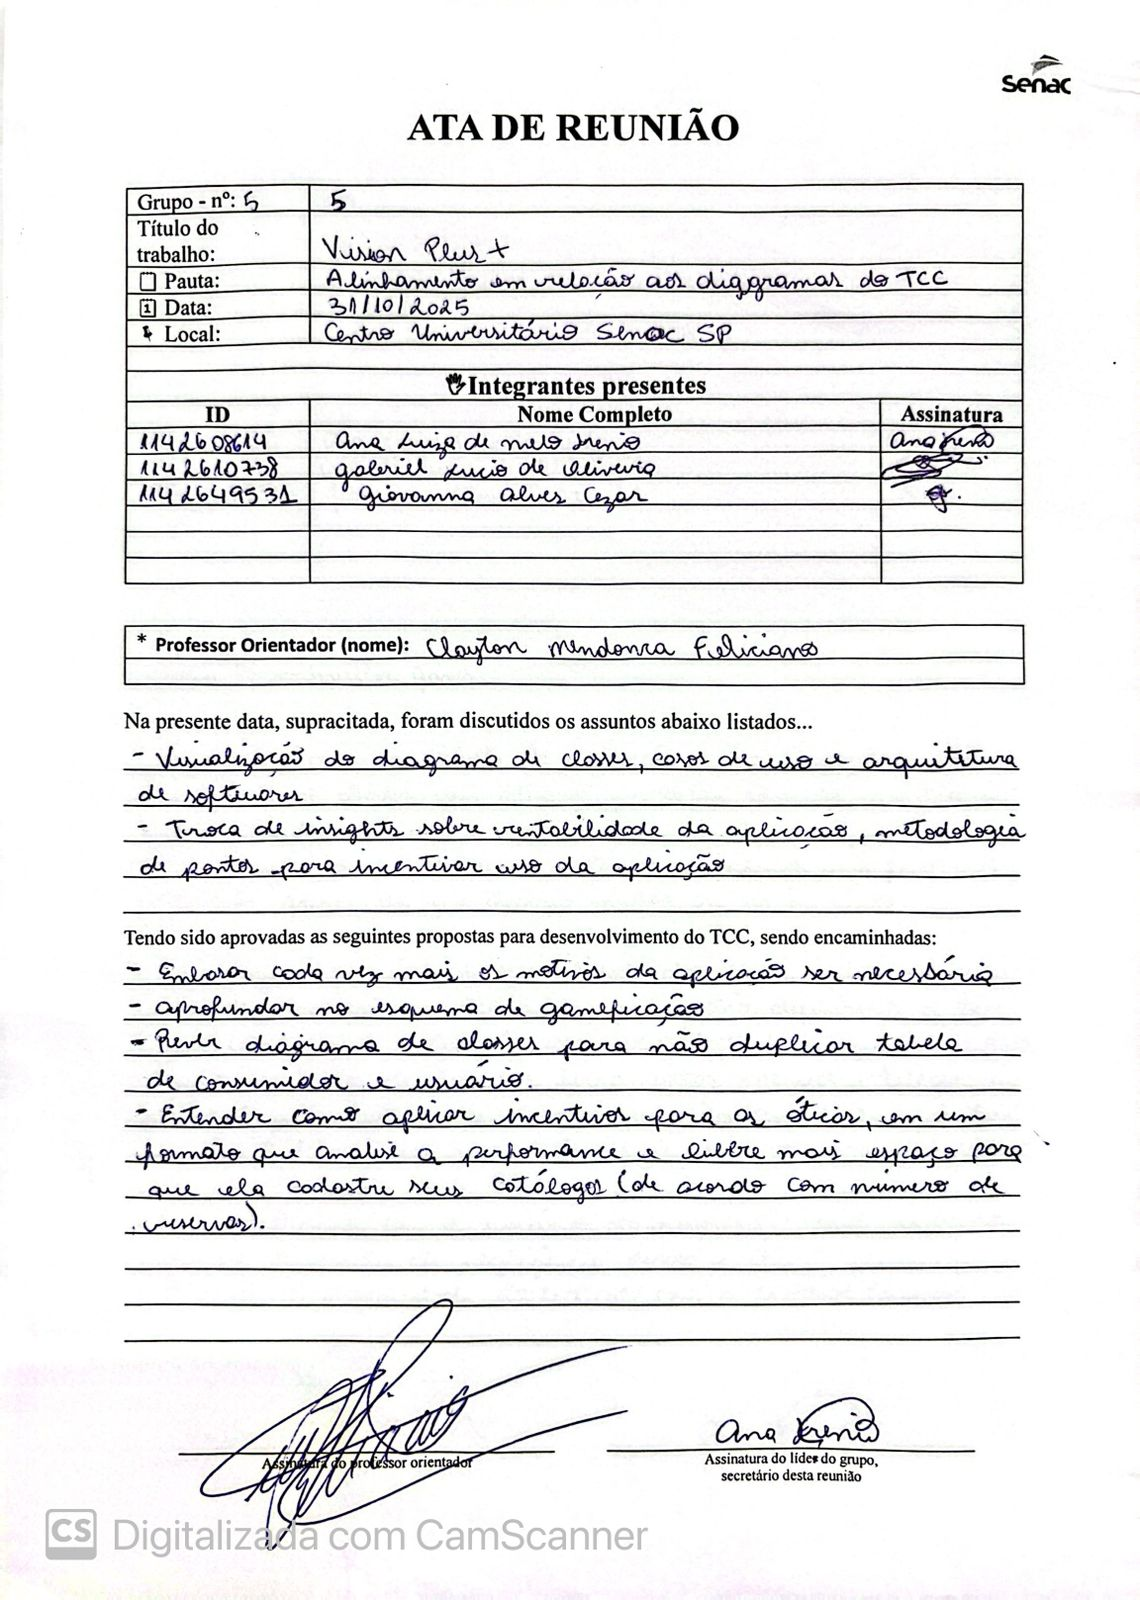 Senac
ATA DE REUNIÃO
Grupo - nº: 5 5
Título do
trabalho: Vision Plus+
Pauta: Alinhamento em relação aos diagramas do TCC
Data: 31/10/2025
Local: Centro Universitário Senac SP
Integrantes presentes
ID Nome Completo Assinatura
1142608614 Ana Luiza de Melo Irenio Ana Irenio
1142610738 Gabriel Lucio de Oliveira
1142649531 Giovanna Alves Cezar
* Professor Orientador (nome): Clayton Mendonça Feliciano
Na presente data, supracitada, foram discutidos os assuntos abaixo listados...
- Visualização do diagrama de classes, casos de uso e arquitetura
de softwares
- Troca de insights sobre rentabilidade da aplicação, metodologia
de pontos para incentivar uso da aplicação
Tendo sido aprovadas as seguintes propostas para desenvolvimento do TCC, sendo encaminhadas:
- Embasar cada vez mais os motivos da aplicação ser necessária
- Aprofundar no esquema de gameficação
- Rever diagrama de classes para não duplicar tabela
de consumidor e usuário.
- Entender como aplicar incentivos para as óticas, em um
formato que analise a performance e libere mais espaço para
que ela cadastre seus catálogos (de acordo com número de
reservas).
Assinatura do professor orientador
Ana Irenio
Assinatura do líder do grupo,
secretário desta reunião
CS Digitalizada com CamScanner